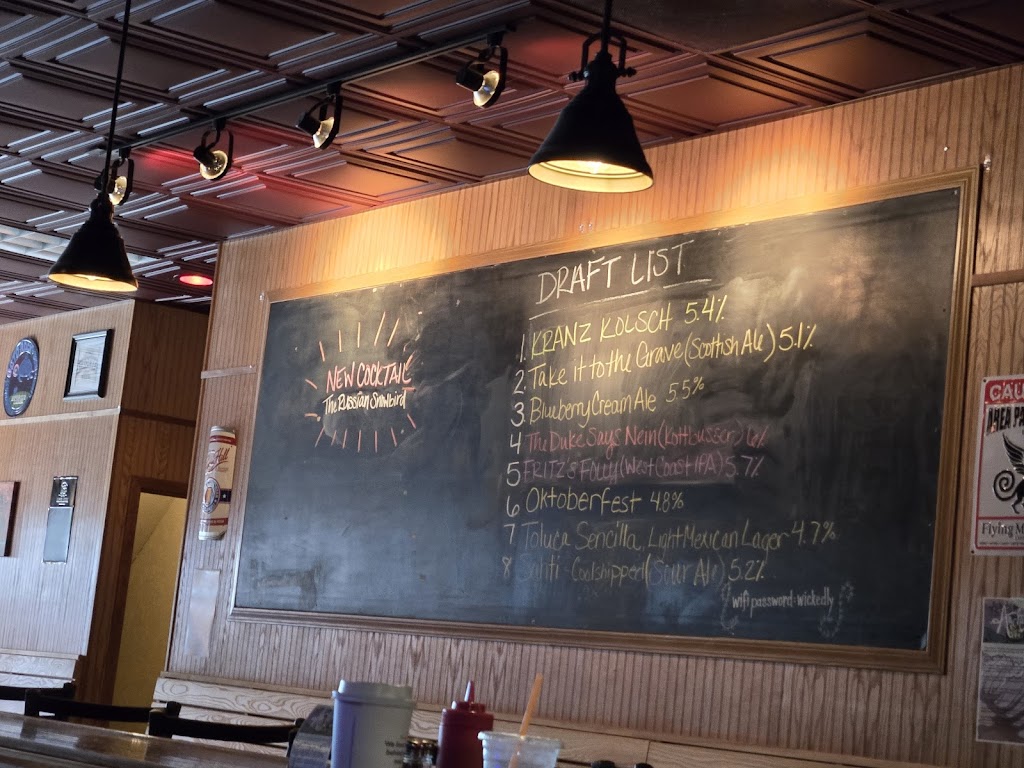 DRAFT LIST
NEW COCKTAIL
The Russian Snowbird
1 KRANZ KOLSCH 5.4%
2 Take it to the Grave (Scottish Ale) 5.1%
3 Blueberry Cream Ale 5.5%
4 The Duke Says Nein (Kottbusser) 6%
5 FRITZ'S FOLLY (West Coast IPA) 5.7%
6 Oktoberfest 4.8%
7 Toluca Sencilla Light Mexican Lager 4.7%
8 Coolshipped (Sour Ale) 5.2%
wifi password: wickedly
CAU
AREA PA
Flying M